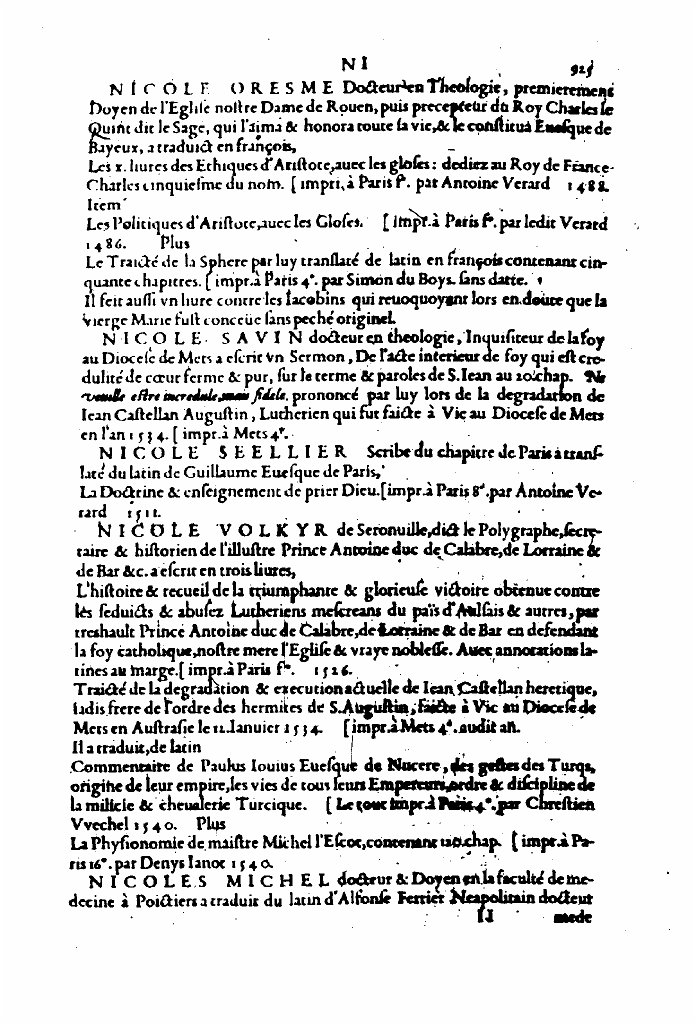 NI 925
NICOLE ORESME Docteur en Theologie, premierement
Doyen de l'Eglise nostre Dame de Rouen, puis precepteur du Roy Charles le
Quint dit le Sage, qui l'aima & honora toute sa vie, & le constitua Euesque de
Bayeux, a traduict en françois,
Les x. liures des Ethiques d'Aristote, auec les gloses: dediez au Roy de France
Charles cinquiesme du nom. [impri, à Paris f°. par Antoine Verard 1488.
Item
Les Politiques d'Aristote, auec les Gloses. [impr. à Paris f°. par ledit Verard
1486. Plus
Le Traicté de la Sphere par luy translaté de latin en françois contenant cin-
quante chapitres. [impr. à Paris 4°. par Simon du Boys. sans datte.
Il feit aussi vn liure contre les Iacobins qui reuoquoyent lors en doute que la
vierge Marie fust conceüe sans peché originel.
NICOLE SAVIN docteur en theologie, Inquisiteur de la foy
au Diocese de Mets a escrit vn Sermon, De l'acte interieur de foy qui est cre-
dulité de cœur ferme & pur, sur le terme & paroles de S. Iean au 20. chap. Ne
veuille estre incredule, mais fidele. prononcé par luy lors de la degradation de
Iean Castellan Augustin, Lutherien qui fut faicte à Vic au Diocese de Mets
en l'an 1534. [impr. à Mets 4°.
NICOLE SEELLIER Scribe du chapitre de Paris a trans-
laté du latin de Guillaume Euesque de Paris,
La Doctrine & enseignement de prier Dieu. [impr. à Paris 8°. par Antoine Ve-
rard 1511.
NICOLE VOLKYR de Seronuille, dict le Polygraphe, secre-
taire & historien de l'illustre Prince Antoine duc de Calabre, de Lorraine &
de Bar &c. a escrit en trois liures,
L'histoire & recueil de la triumphante & glorieuse victoire obtenue contre
les seduicts & abusez Lutheriens mescreans du païs d'Aulsais & autres, par
treshault Prince Antoine duc de Calabre, de Lorraine & de Bar en defendant
la foy catholique, nostre mere l'Eglise & vraye noblesse. Auec annotations la-
tines au marge. [impr. à Paris f°. 1526.
Traicté de la degradation & execution actuelle de Iean Castellan heretique,
iadis frere de l'ordre des hermites de S. Augustin, faicte à Vic au Diocese de
Mets en Austrasie le 12. Ianuier 1534. [impr. à Mets 4°. audit an.
Il a traduit, de latin
Commentaire de Paulus Iouius Euesque de Nucere, des gestes des Turqs,
origine de leur empire, les vies de tous leurs Empereurs, ordre & discipline de
la milicie & cheualerie Turcique. [Le tout impr. à Paris 4°. par Chrestien
Vvechel 1540. Plus
La Physionomie de maistre Michel l'Escot, contenant 120. chap. [impr. à Pa-
ris 16°. par Denys Ianot 1540.
NICOLES MICHEL docteur & Doyen en la faculté de me-
decine à Poictiers a traduit du latin d'Alfonse Ferrier Neapolitain docteur
mede